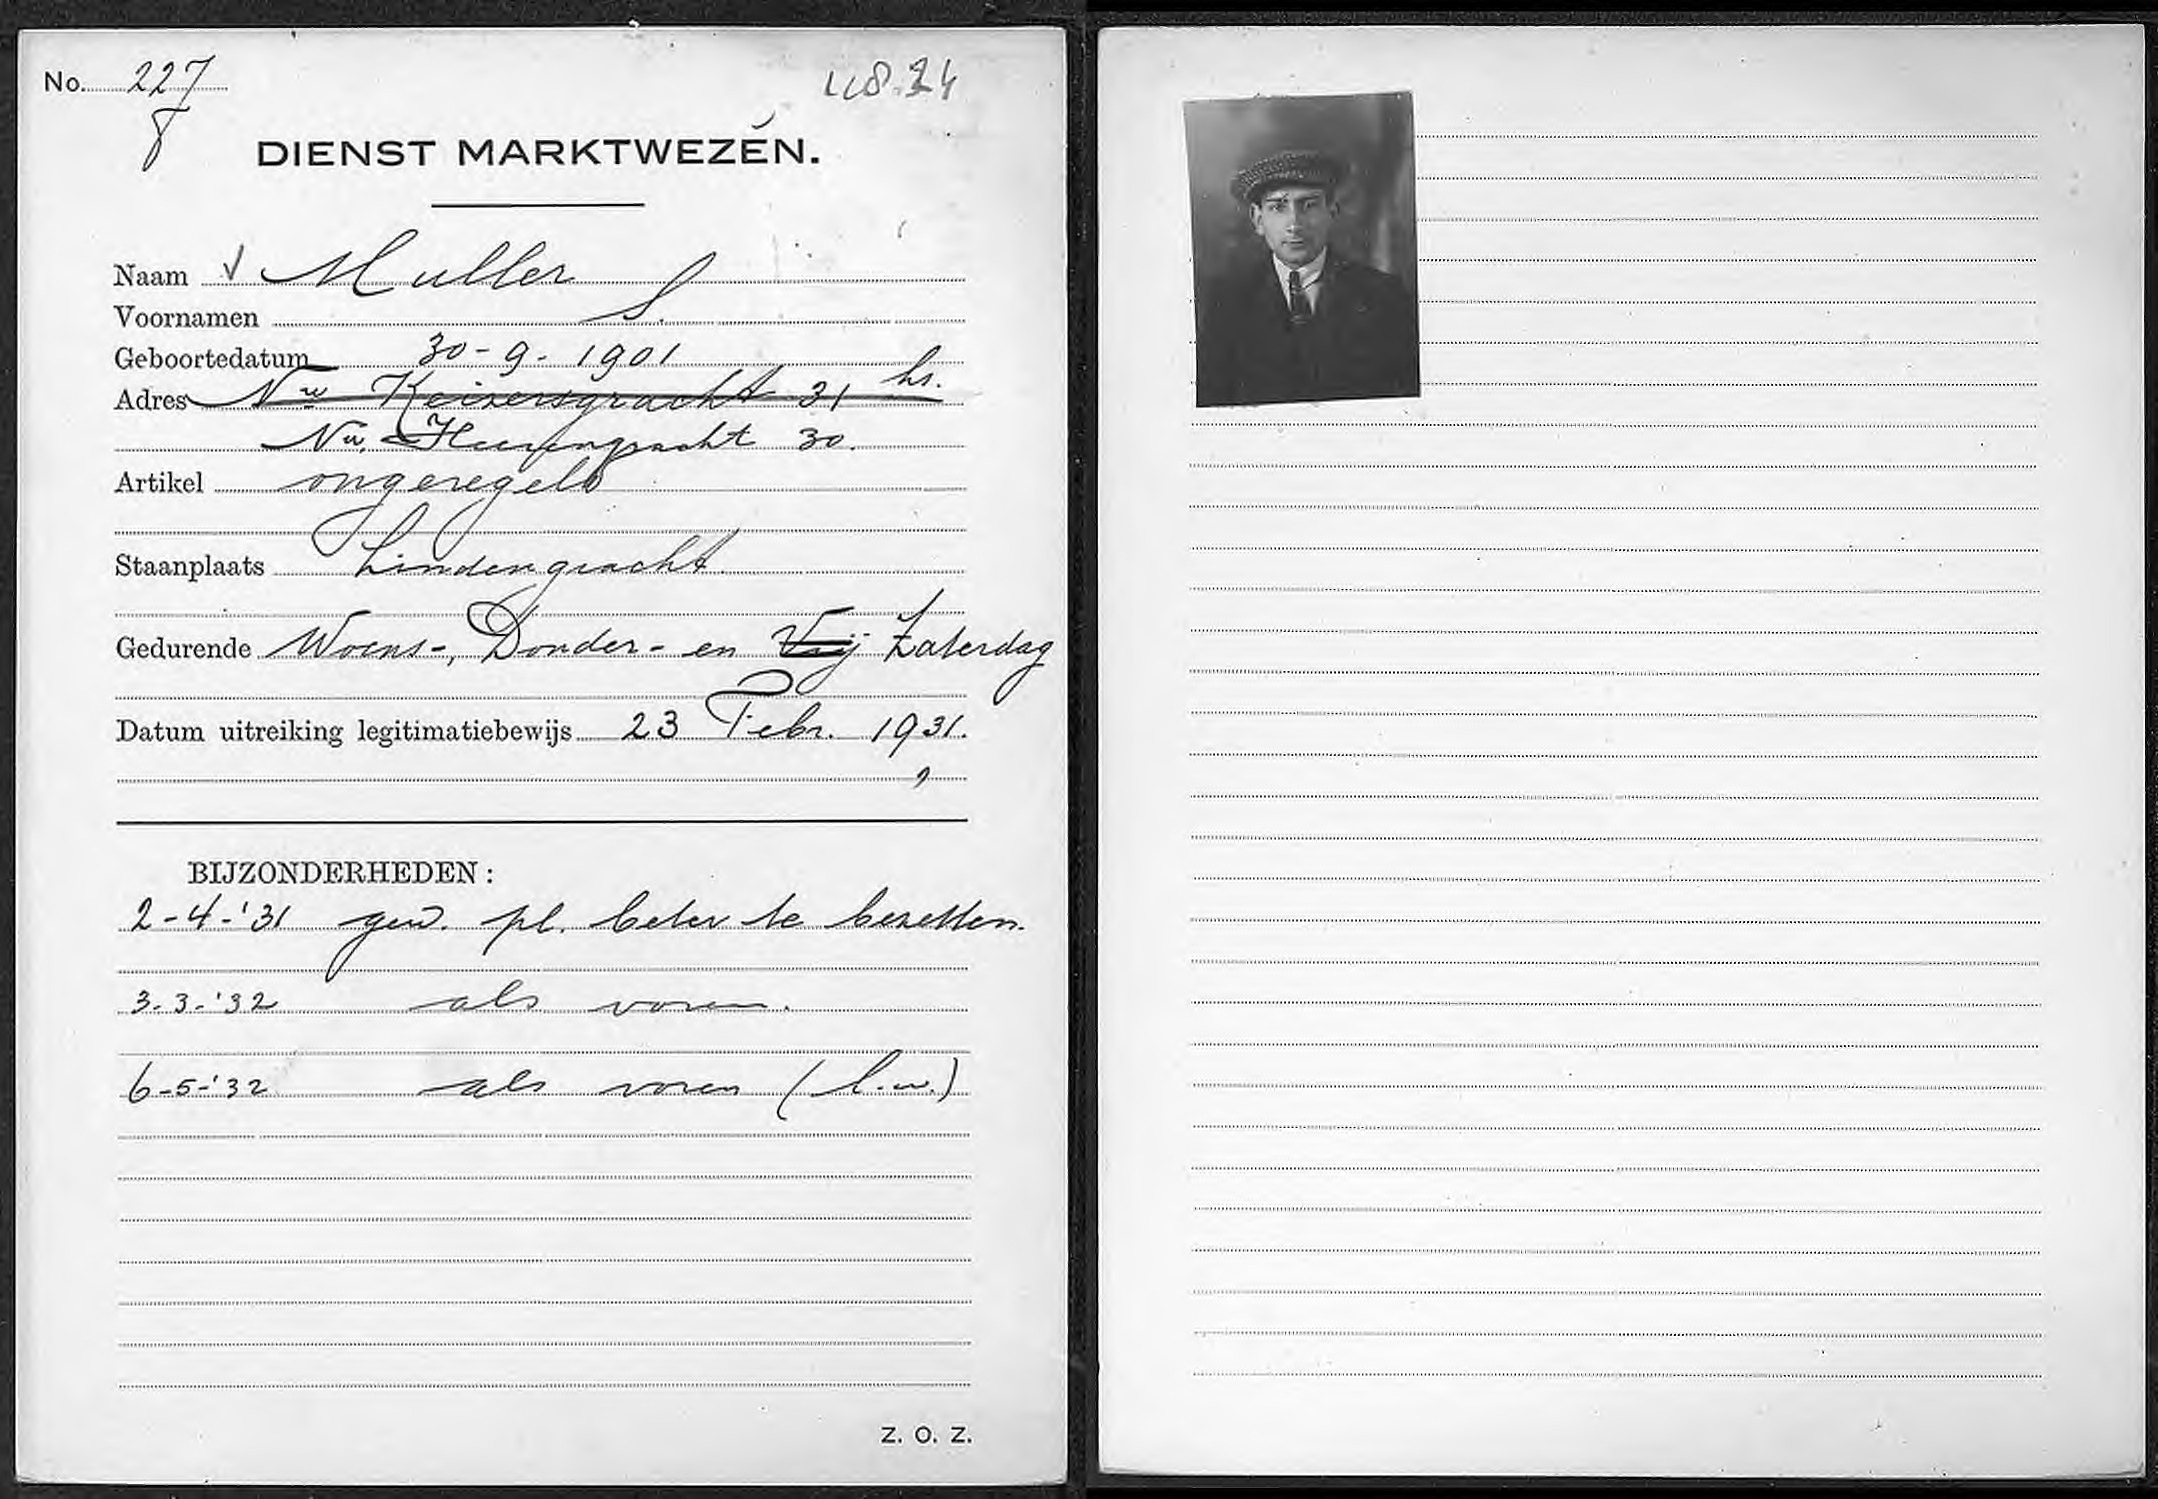 No. 227
8
DIENST MARKTWEZEN.
Naam V Muller
Voornamen S.
Geboortedatum 30-9-1901
Adres Nw Keizersgracht 31 hs.
Nw. Heerengracht 30.
Artikel ongeregeld
Staanplaats Lindengracht
Gedurende Woens-, Donder- en Vrij Zaterdag
Datum uitreiking legitimatiebewijs 23 Febr. 1931.
BIJZONDERHEDEN:
2-4-'31 gew. pl. beter te bezetten.
3-3-'32 als voren.
6-5-'32 als voren (l.w.)
Z. O. Z.